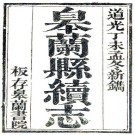 道光丁未孟冬新鐫
皋蘭縣續志
板存皋蘭書院